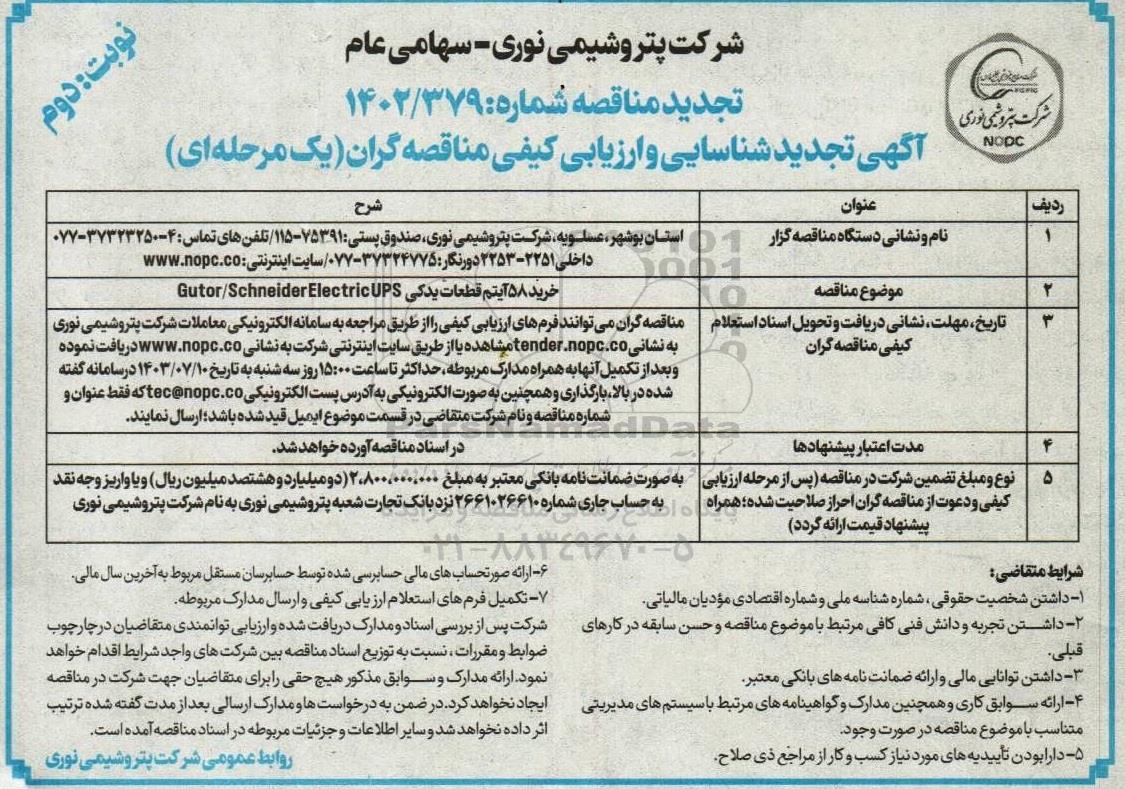 نوبت: دوم
شرکت پتروشیمی نوری-سهامی عام
تجدید مناقصه شماره: ۱۴۰۲/۳۷۹
آگهی تجدید شناسایی و ارزیابی کیفی مناقصه گران (یک مرحله‌ای)
شرکت پتروشیمی نوری
NOPC
ردیف عنوان شرح
۱ نام و نشانی دستگاه مناقصه گزار
استان بوشهر، عسلویه، شرکت پتروشیمی نوری، صندوق پستی: ۷۵۳۹۱-۱۱۵/تلفن های تماس: ۴-۳۷۳۲۳۲۵۰-۰۷۷
داخلی ۲۲۵۱-۲۲۵۳ دورنگار: ۳۷۳۲۴۷۷۵-۰۷۷/سایت اینترنتی: www.nopc.co
۲ موضوع مناقصه
خرید ۵۸ آیتم قطعات یدکی Gutor/Schneider Electric UPS
۳ تاریخ، مهلت، نشانی دریافت و تحویل اسناد استعلام
کیفی مناقصه گران
مناقصه گران می توانند فرم های ارزیابی کیفی را از طریق مراجعه به سامانه الکترونیکی معاملات شرکت پتروشیمی نوری
به نشانی tender.nopc.co مشاهده یا از طریق سایت اینترنتی شرکت به نشانی www.nopc.co دریافت نموده
و بعد از تکمیل آنها به همراه مدارک مربوطه، حداکثر تا ساعت ۱۵:۰۰ روز سه شنبه به تاریخ ۱۴۰۳/۰۷/۱۰ در سامانه گفته
شده در بالا، بارگذاری و همچنین به صورت الکترونیکی به آدرس پست الکترونیکی tec@nopc.co که فقط عنوان و
شماره مناقصه و نام شرکت متقاضی در قسمت موضوع ایمیل قید شده باشد؛ ارسال نمایند.
۴ مدت اعتبار پیشنهادها
در اسناد مناقصه آورده خواهد شد.
۵ نوع و مبلغ تضمین شرکت در مناقصه (پس از مرحله ارزیابی
کیفی و دعوت از مناقصه گران احراز صلاحیت شده؛ همراه
پیشنهاد قیمت ارائه گردد)
به صورت ضمانت نامه بانکی معتبر به مبلغ ۲,۸۰۰,۰۰۰,۰۰۰ (دو میلیارد و هشتصد میلیون ریال) و یا واریز وجه نقد
به حساب جاری شماره ۲۶۶۱۰۲۶۶۱۰ نزد بانک تجارت شعبه پتروشیمی نوری به نام شرکت پتروشیمی نوری
ParsNamadData
پایگاه اطلاع رسانی مناقصه و مزایده
۰۲۱-۸۸۳۴۹۶۷۰-۵
شرایط متقاضی:
۱- داشتن شخصیت حقوقی، شماره شناسه ملی و شماره اقتصادی مؤدیان مالیاتی.
۲- داشتن تجربه و دانش فنی کافی مرتبط با موضوع مناقصه و حسن سابقه در کارهای
قبلی.
۳- داشتن توانایی مالی و ارائه ضمانت نامه های بانکی معتبر.
۴- ارائه سوابق کاری و همچنین مدارک و گواهینامه های مرتبط با سیستم های مدیریتی
متناسب با موضوع مناقصه در صورت وجود.
۵- دارا بودن تأییدیه های مورد نیاز کسب و کار از مراجع ذی صلاح.
۶- ارائه صورتحساب های مالی حسابرسی شده توسط حسابرسان مستقل مربوط به آخرین سال مالی.
۷- تکمیل فرم های استعلام ارزیابی کیفی و ارسال مدارک مربوطه.
شرکت پس از بررسی اسناد و مدارک دریافت شده و ارزیابی توانمندی متقاضیان در چارچوب
ضوابط و مقررات، نسبت به توزیع اسناد مناقصه بین شرکت های واجد شرایط اقدام خواهد
نمود. ارائه مدارک و سوابق مذکور هیچ حقی را برای متقاضیان جهت شرکت در مناقصه
ایجاد نخواهد کرد. در ضمن به درخواست ها و مدارک ارسالی بعد از مدت گفته شده ترتیب
اثر داده نخواهد شد و سایر اطلاعات و جزئیات مربوطه در اسناد مناقصه آمده است.
روابط عمومی شرکت پتروشیمی نوری